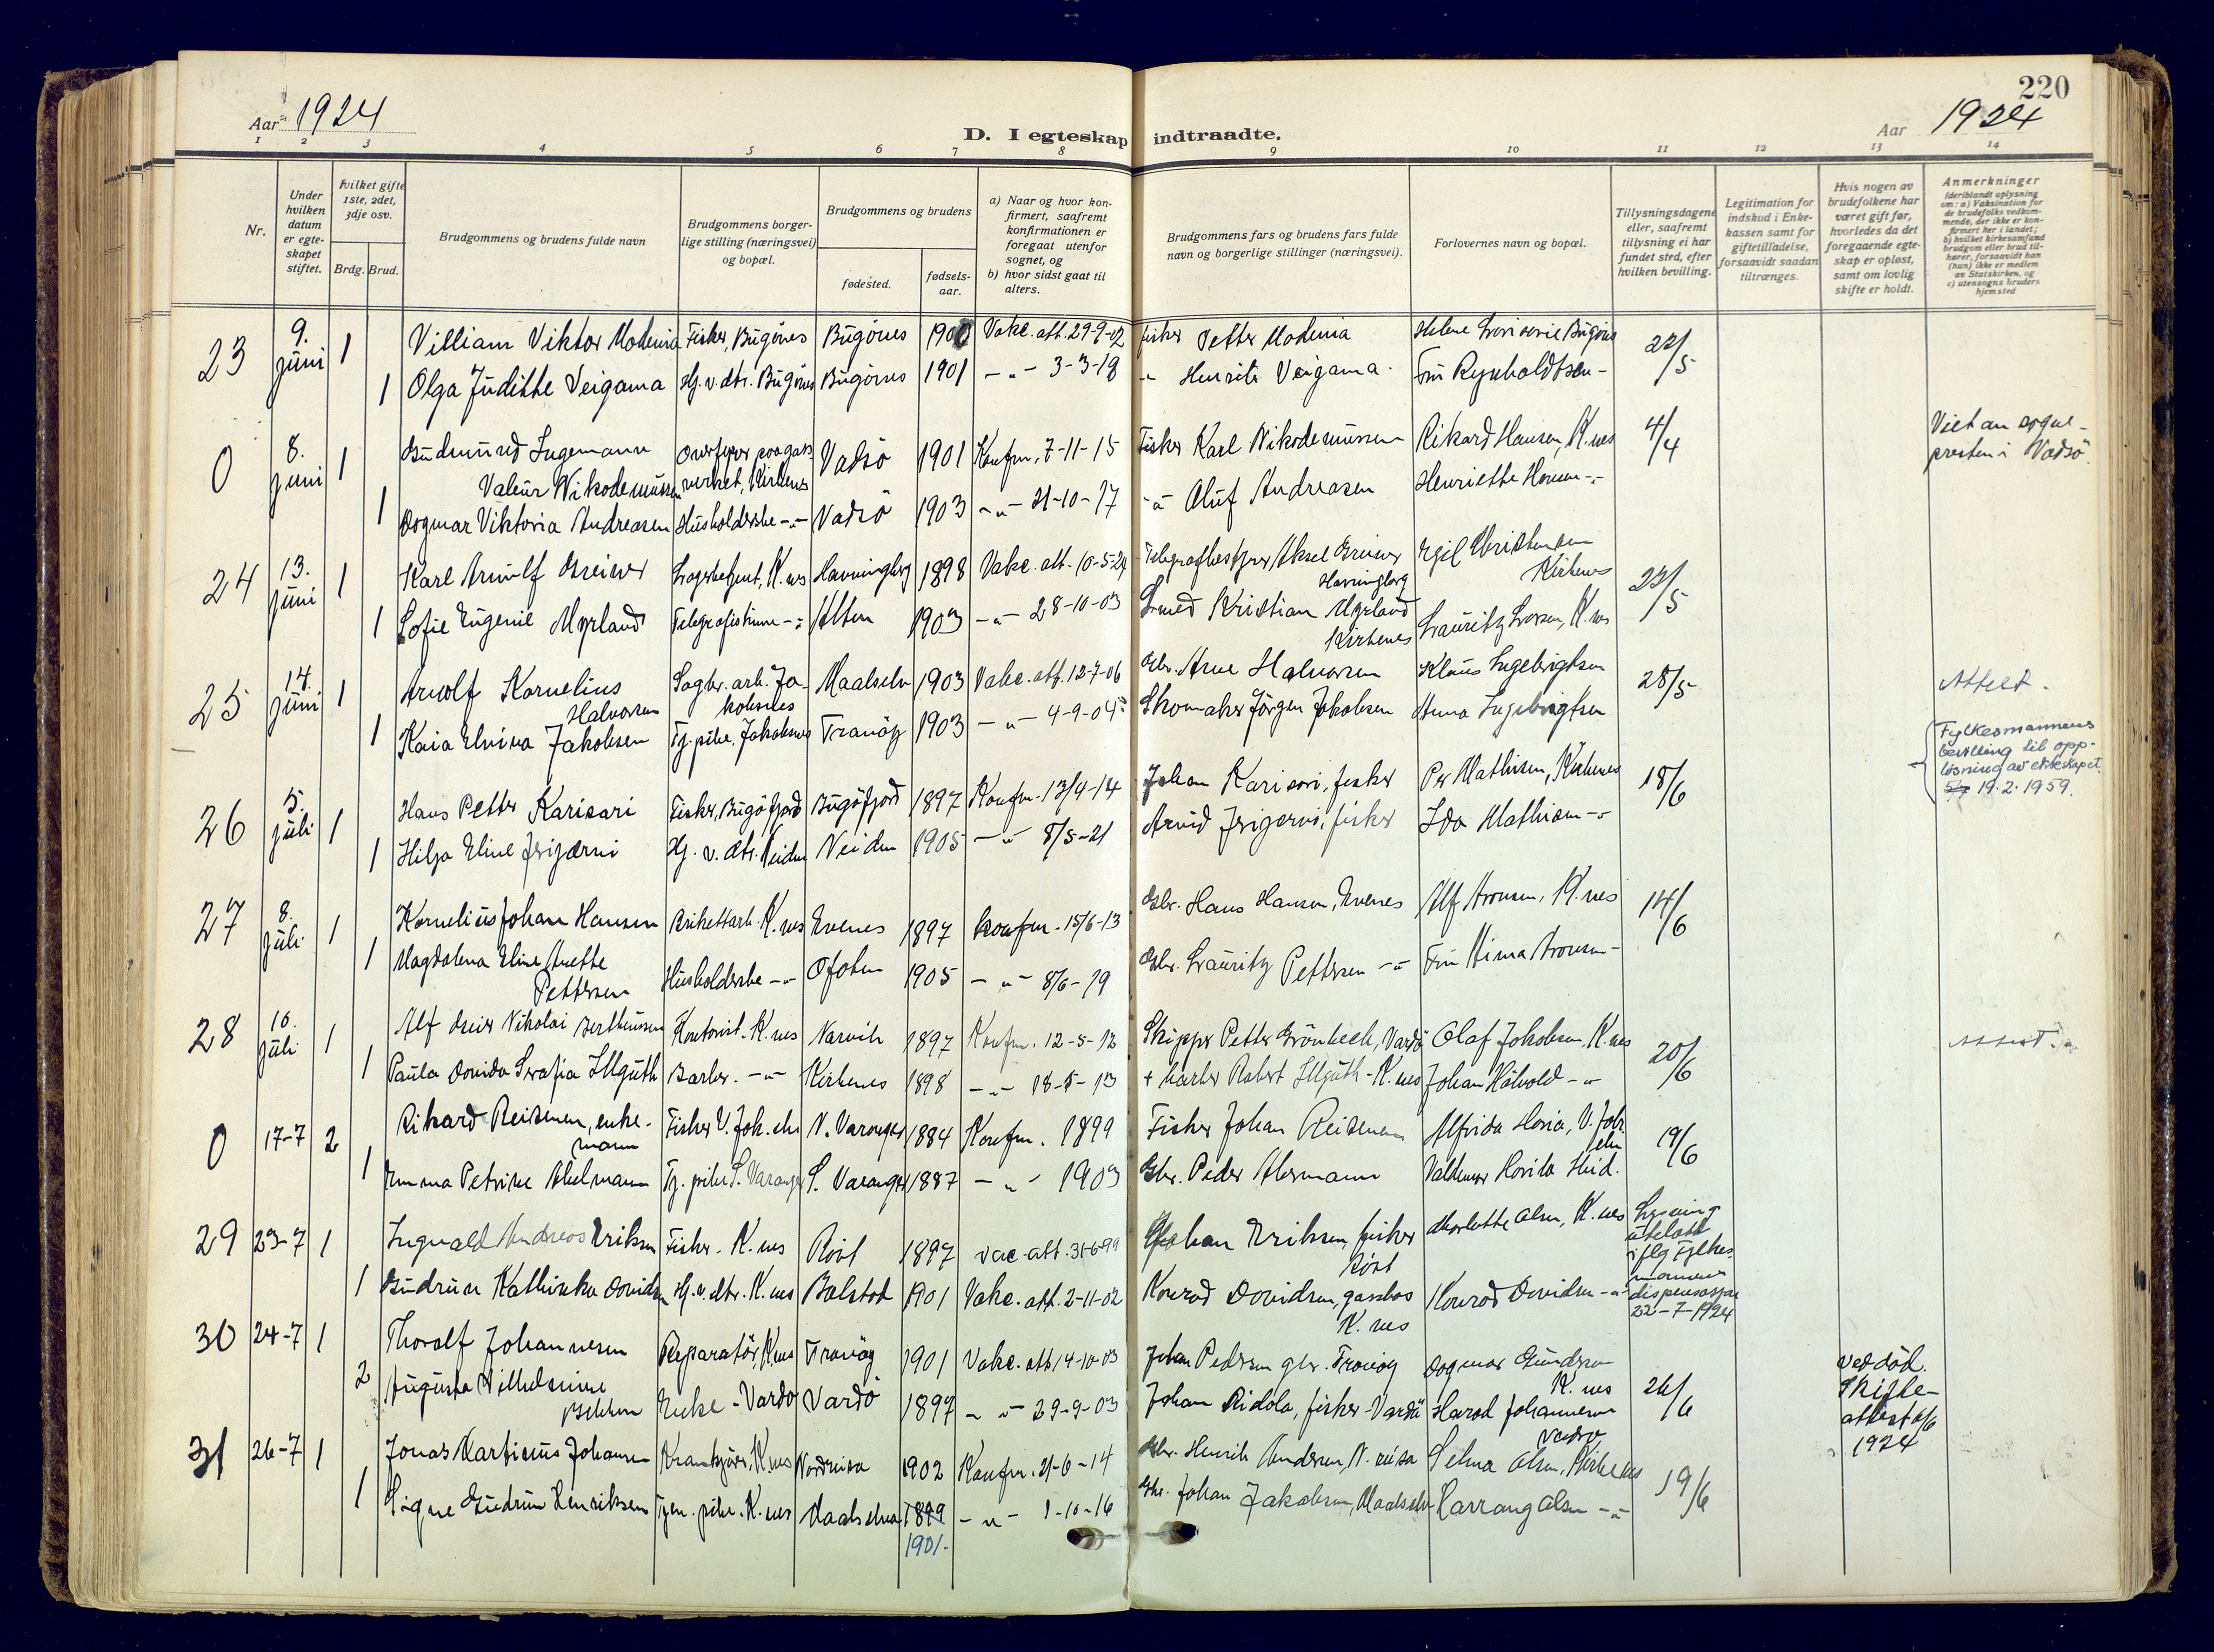 220
Aar 1924
D. I egteskap indtraadte.
Aar 1924
1 2 3 4 5 6 7 8 9 10 11 12 13 14
Nr.
Under hvilken datum er egteskapet stiftet.
Hvilket gifte 1ste, 2det, 3dje osv.
Brdg. Brud.
Brudgommens og brudens fulde navn
Brudgommens borgerlige stilling (næringsvei) og bopæl.
Brudgommens og brudens
fødested.
fødselsaar.
a) Naar og hvor konfirmert, saafremt konfirmationen er foregaat utenfor sognet, og
b) hvor sidst gaat til alters.
Brudgommens fars og brudens fars fulde navn og borgerlige stillinger (næringsvei).
Forlovernes navn og bopæl.
Tillysningsdagene eller, saafremt tillysning ei har fundet sted, efter hvilken bevilling.
Legitimation for indskud i Enkekassen samt for giftetilladelse, forsaavidt saadan tiltrænges.
Hvis nogen av brudefolkene har været gift før, hvorledes da det foregaaende egteskap er opløst, samt om lovlig skifte er holdt.
Anmerkninger (deriblandt oplysning om: a) Vaksination for de brudefolks vedkommende, der ikke er konfirmert her i landet; b) hvilket kirkesamfund brudgom eller brud tilhører, forsaavidt han (hun) ikke er medlem av Statskirken, og c) utensogns bruders hjemsted
23 9. juni 1 Villiam Viktor Madenia Fisker, Bugönes Bugönes 1900 Vakc. att. 29-9-02 fisker Petter Madenia Helene Bugönes 22/5
1 Olga Judithe Seigama Hj. v. dtr. Bugönes Bugönes 1901 -"- 3-3-18 " Henrik Veigama Fru Reynholdtsen -
0 8. juni 1 Gudmund Ingemann Valeur Nikodemussen verket, Kirkenes Vadsö 1901 Konfm. 7-11-15 Fisker Karl Nikodemussen Rikard Hansen, K.nes 4/4 Viet av sogne-
presten i Vadsö.
1 Dagmar Viktoria Andreasen Husholderske -"- Vadsö 1903 -"- 21-10-17 -"- Oluf Andreasen Henriette Hansen -"-
24 13. juni 1 Karl Arnulf Greiner Lagerbetjent, K.nes Havningberg 1898 Vakc. att. 10-5-24 Telegrafbestyrer Aksel Greiner Havningberg Egil Christensen Kirkenes 22/5
1 Sofie Eugenie Myrland Telegrafistinne -"- Alten 1903 -"- 28-10-03 Smed Kristian Myrland Kirkenes Lauritz Larsen, K.nes
25 14. juni 1 Arnolf Kornelius Halvorsen Sagbr. arb. Jakobsnes Maalselv 1903 Vakc. att. 12-7-06 Gbr. Arne Halvorsen Klaus Ingebrigtsen 28/5 Attest.
1 Kaia Elvina Jakobsen Tj. pike, Jakobsnes Tranöy 1903 -"- 4-9-04 Skomaker Jörgen Jakobsen Anna Ingebrigtsen
Fylkesmannens
bevilling til opp-
løsning av ekteskapet
19.2.1959.
26 5. juli 1 Hans Petter Karisari Fisker, Bugöfjord Bugöfjord 1897 Konfm. 13/4-14 Johan Karisari, fisker Per Mathisen, Kirkenes 18/6
1 Hilja Eline Hj. v. dtr. Neiden Neiden 1905 -"- 8/5-21 Arvid fisker Ida Mathisen -"-
27 8. juli 1 Kornelius Johan Hansen Brikettarb. K.nes Evenes 1897 Konfm. 15/6-13 Gbr. Hans Hansen, Evenes Alf Aronsen, K.nes 14/6
1 Magdalena Eline Anette Pettersen Husholderske -"- Ofoten 1905 -"- 8/6-19 Gbr. Lauritz Pettersen -"- Fru Aronsen -
28 10. juli 1 Alf Nikolai Bertheussen Kontorist. K.nes Narvik 1897 Konfm. 12-5-12 Skipper Petter Grönbeck, Vardö Olaf Jakobsen, K.nes 20/6 Attest.
1 Paula Davida Serafia Illguth Barber. -"- Kirkenes 1898 -"- 18-5-13 + barber Robert Illguth - K.nes Johan -"-
0 17-7 2 Rikard Reisenen, enkemann Fisker V. Jak. elv N. Varanger 1884 Konfm. 1899 Fisker Johan Reisenen Alfrida V. Jak. elv 19/6
1 Emma Petrine Tj. pike S. Varanger S. Varanger 1887 -"- 1903 Gbr. Peder Valdemar
29 23-7 1 Ingvald Andreas Eriksen Fisker. K.nes Röst 1897 vac. att. 31-6-99 Johan Eriksen, fisker Röst Charlotte Olsen, K.nes Lysning
utelatt
iflg. fylkes-
mannens
dispensasjon
22-7-1924
1 Gudrun Kathinka Davidsen Hj. v. dtr. K.nes Balstad 1901 Vakc. att. 2-11-02 Konrad Davidsen, K.nes Konrad Davidsen -"-
30 24-7 1 Thoralf Johannesen Reparatör, K.nes Tranöy 1901 Vakc. att. 14-10-03 Johan Pedersen gbr. Tranöy Dagmar Gundersen K.nes 26/6 ved död.
Skifte-
attest 6/6
1924
2 Augusta Vilhelmine Enke - Vardö Vardö 1897 -"- 29-9-03 Johan Ridola, fisker - Vardö Harald Johannesen Vadsö
31 26-7 1 Jonas Martinius Johansen K.nes Nordreisa 1902 Konfm. 21-6-14 Gbr. Henrik Andersen, N. reisa Selma Olsen, Kirkenes 19/6
1 Signe Gudrun Henriksen Tjen. pike. K.nes Maalselva 1899 -"- 1-10-16 Gbr. Johan Jakobsen, Maalselv Olsen -"-
1901.